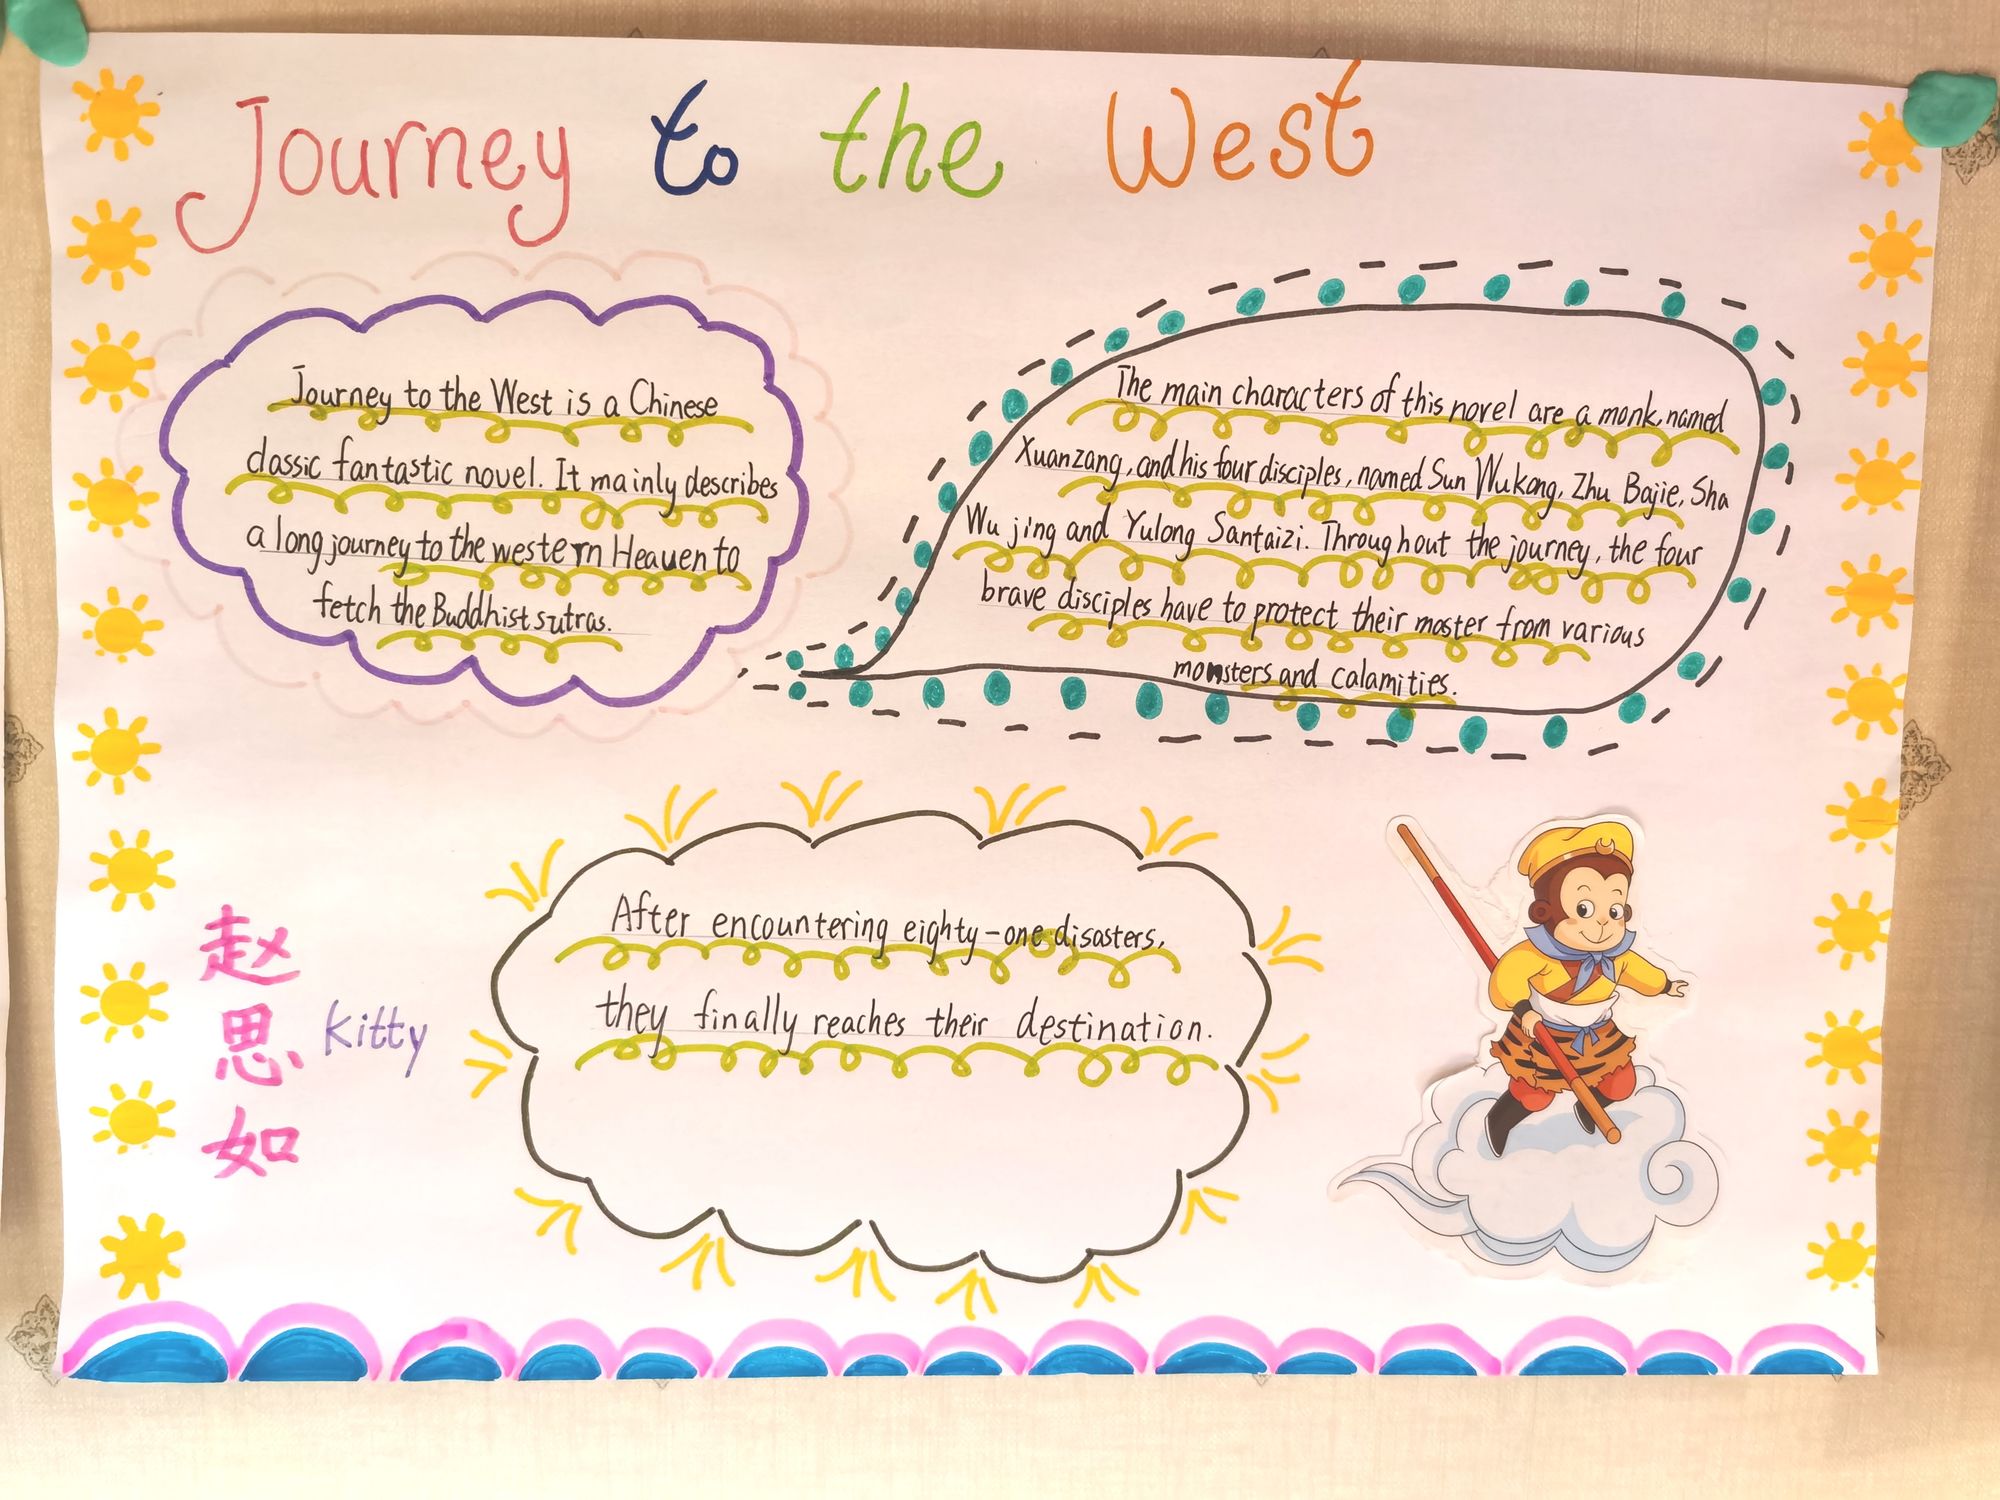 Journey to the West
Journey to the West is a Chinese
classic fantastic novel. It mainly describes
a long journey to the western Heaven to
fetch the Buddhist sutras.
The main characters of this novel are a monk, named
Xuanzang, and his four disciples, named Sun Wukong, Zhu Bajie, Sha
Wu jing and Yulong Santaizi. Throughout the journey, the four
brave disciples have to protect their master from various
monsters and calamities.
After encountering eighty-one disasters,
they finally reaches their destination.
赵
思
如
Kitty